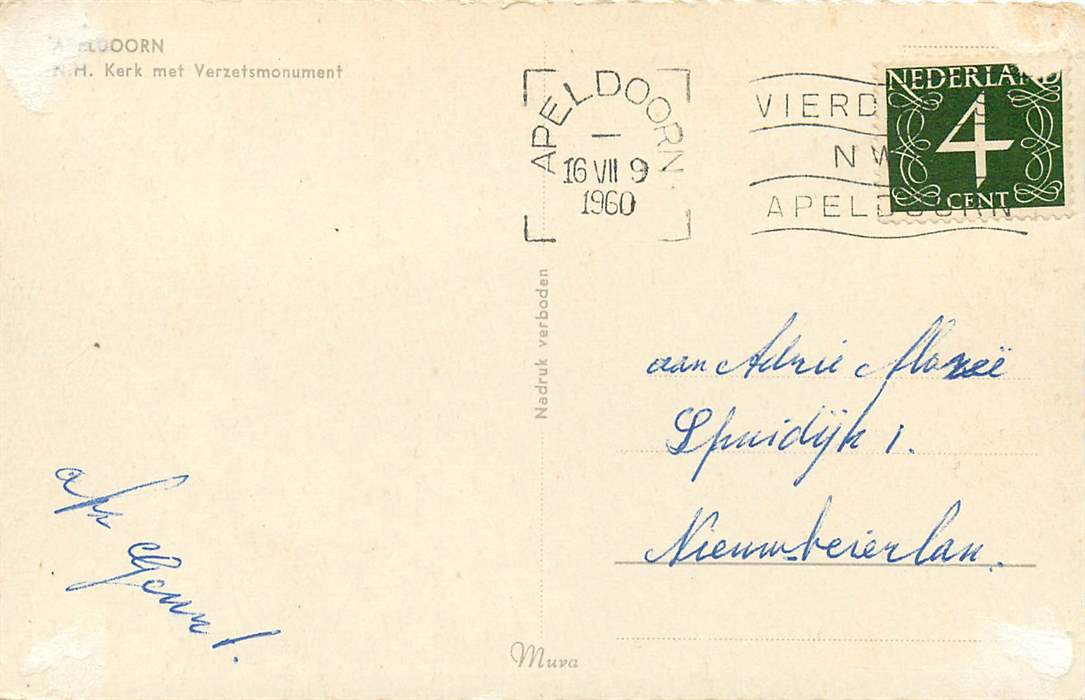 APELDOORN
N.H. Kerk met Verzetsmonument
APELDOORN
16 VII 9
1960
VIERD
N W
APELDOORN
NEDERLAND
4
CENT
Nadruk verboden
aan Adrie
Spuidijk 1.
Nieuw-beierlan.
afz
Muva